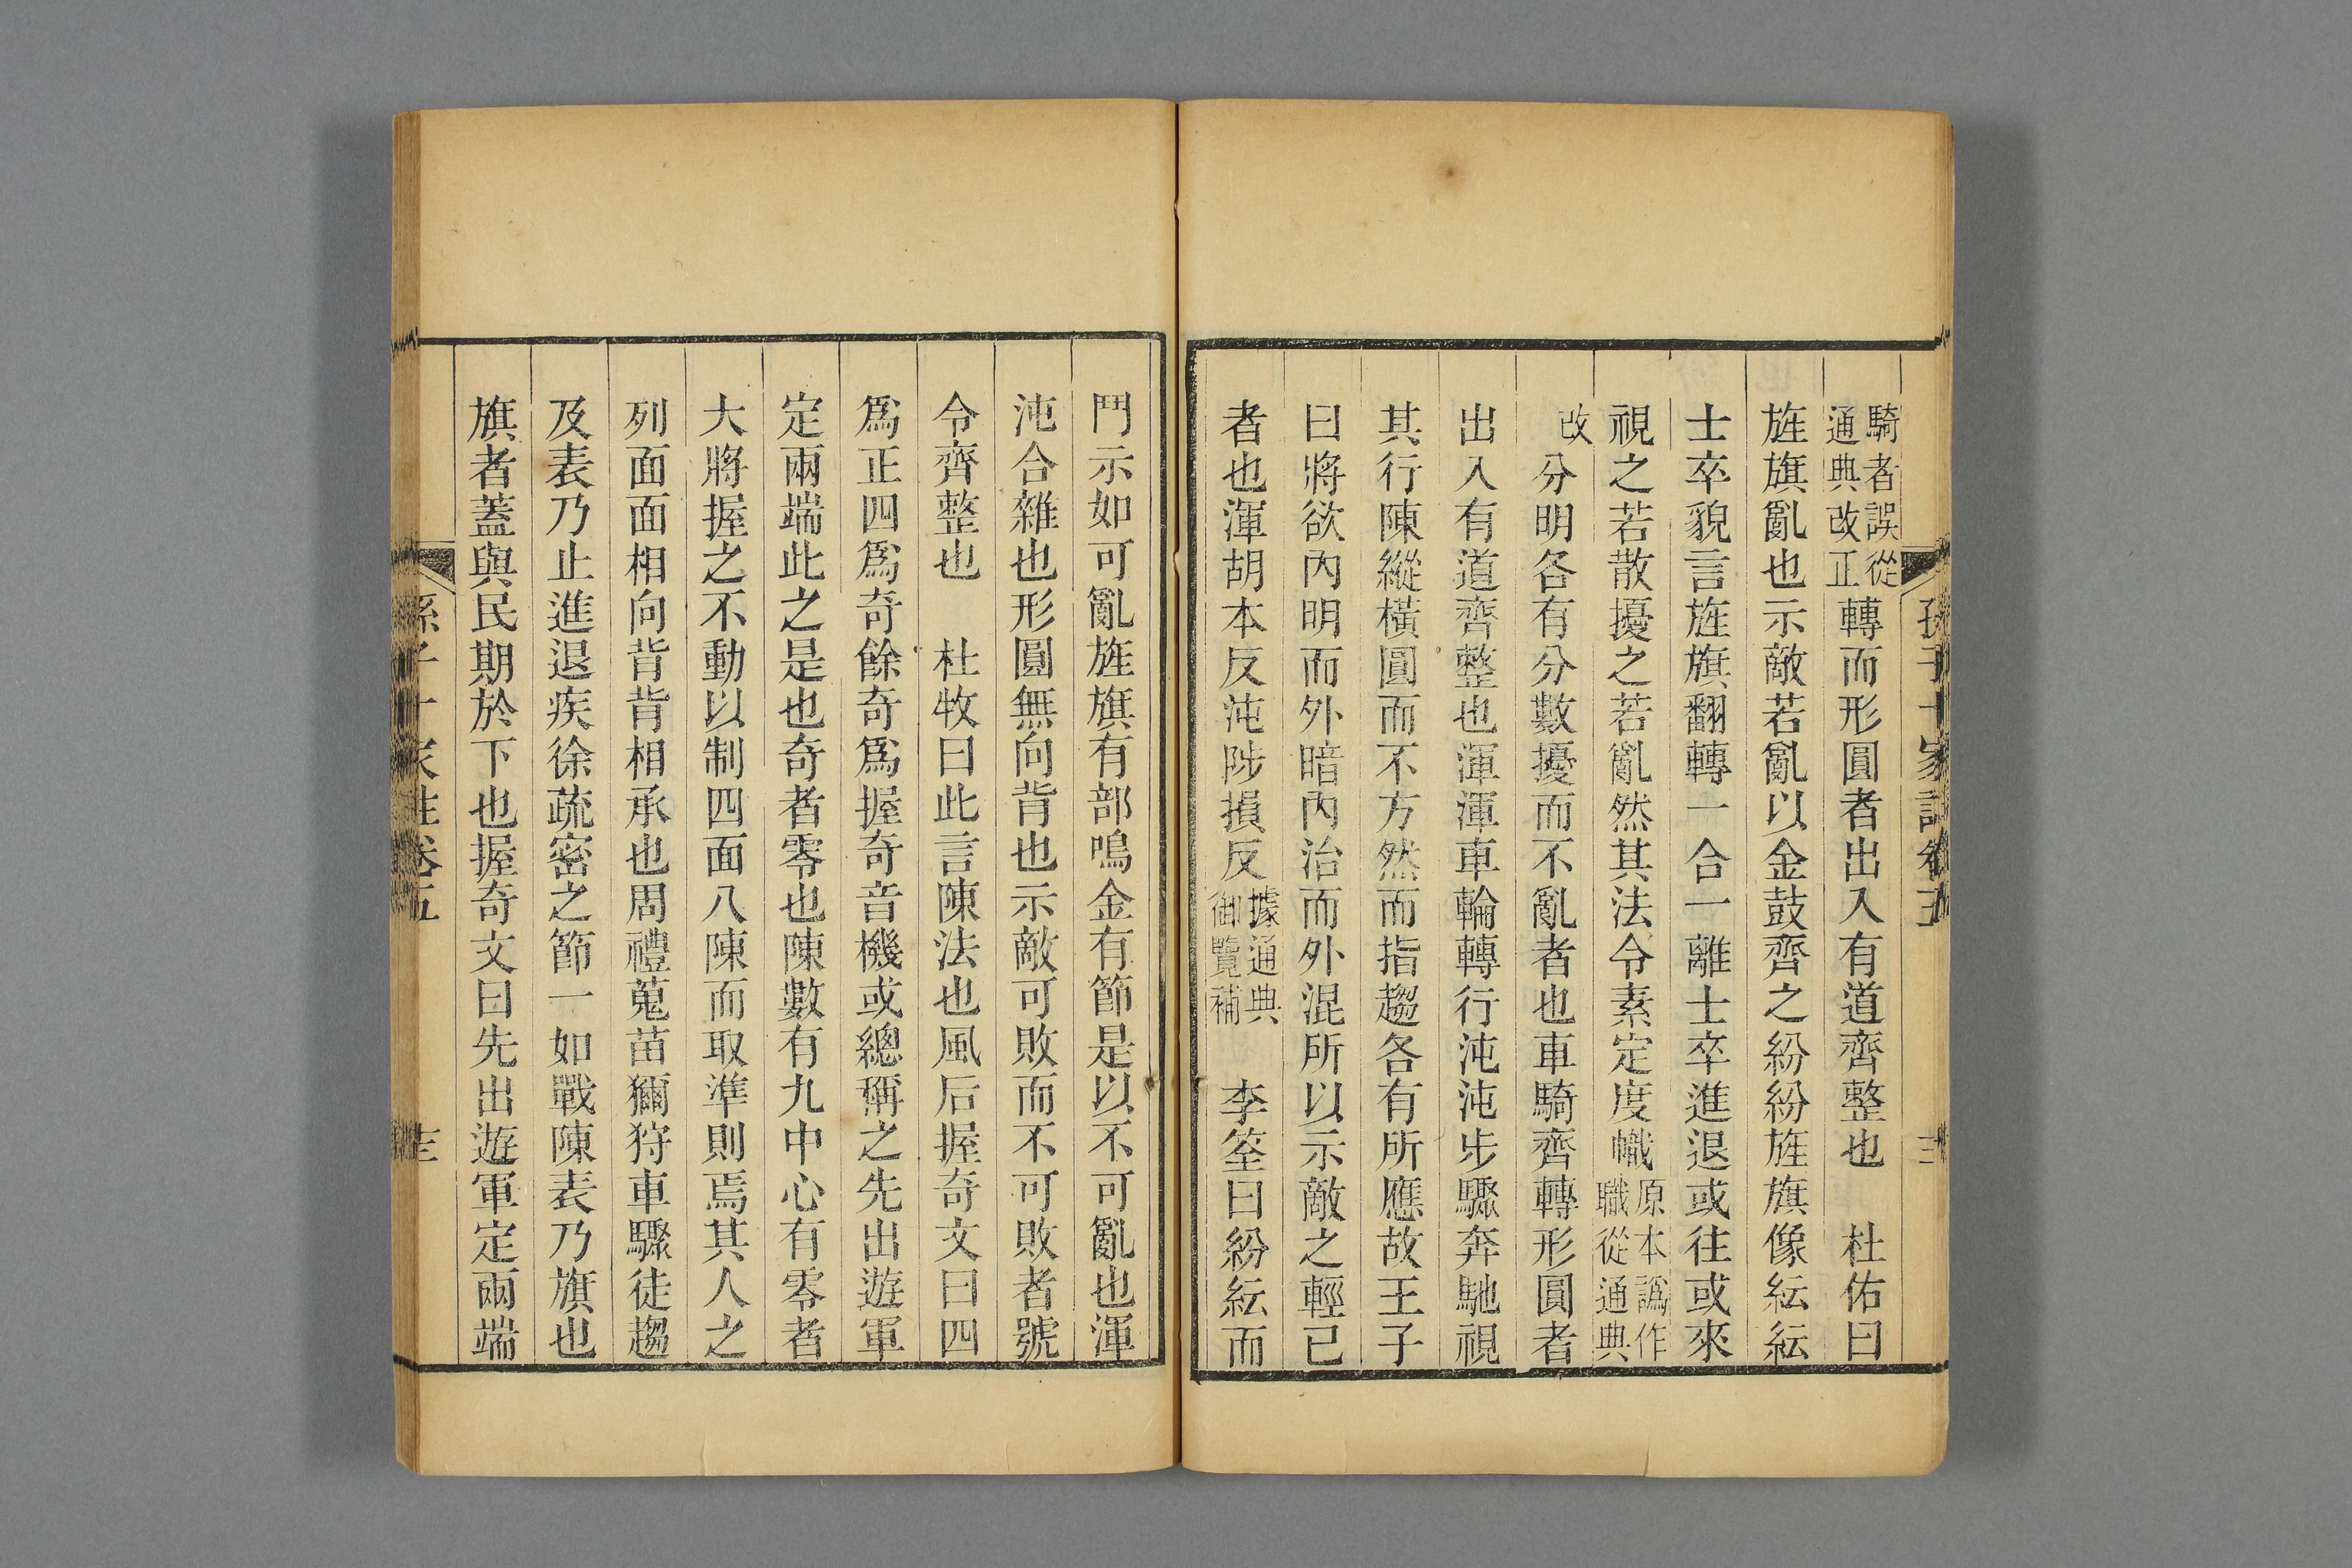 孫子十家註卷五
騎者誤從通典改正轉而形圓者出入有道齊整也　杜佑曰
旌旗亂也示敵若亂以金鼓齊之紛紛旌旗像紜紜
士卒貌言旌旗翻轉一合一離士卒進退或往或來
視之若散擾之若亂然其法令素定度幟原本譌作職從通典
改分明各有分數擾而不亂者也車騎齊轉形圓者
出入有道齊整也渾渾車輪轉行沌沌步驟奔馳視
其行陳縱橫圓而不方然而指趨各有所應故王子
曰將欲內明而外暗內治而外混所以示敵之輕已
者也渾胡本反沌陟損反據通典御覽補　李筌曰紛紜而
鬥示如可亂旌旗有部鳴金有節是以不可亂也渾
沌合雜也形圓無向背也示敵可敗而不可敗者號
令齊整也　杜牧曰此言陳法也風后握奇文曰四
爲正四爲奇餘奇爲握奇音機或總稱之先出遊軍
定兩端此之是也奇者零也陳數有九中心有零者
大將握之不動以制四面八陳而取準則焉其人之
列面面相向背背相承也周禮蒐苗獮狩車驟徒趨
及表乃止進退疾徐疏密之節一如戰陳表乃旗也
旗者蓋與民期於下也握奇文曰先出遊軍定兩端
孫子十家註卷五